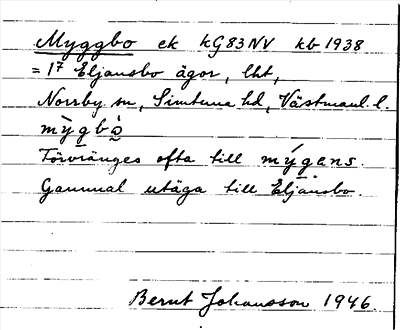 Myggbo ek kG83NV kb 1938
= 1⁷ Eljansbo ägor, lht,
Norrby sn, Simtuna hd, Västmanl. l.
mỳgbò̤
Förvränges ofta till mýgens.
Gammal utäga till Eljansbo.
Bernt Johansson 1946.